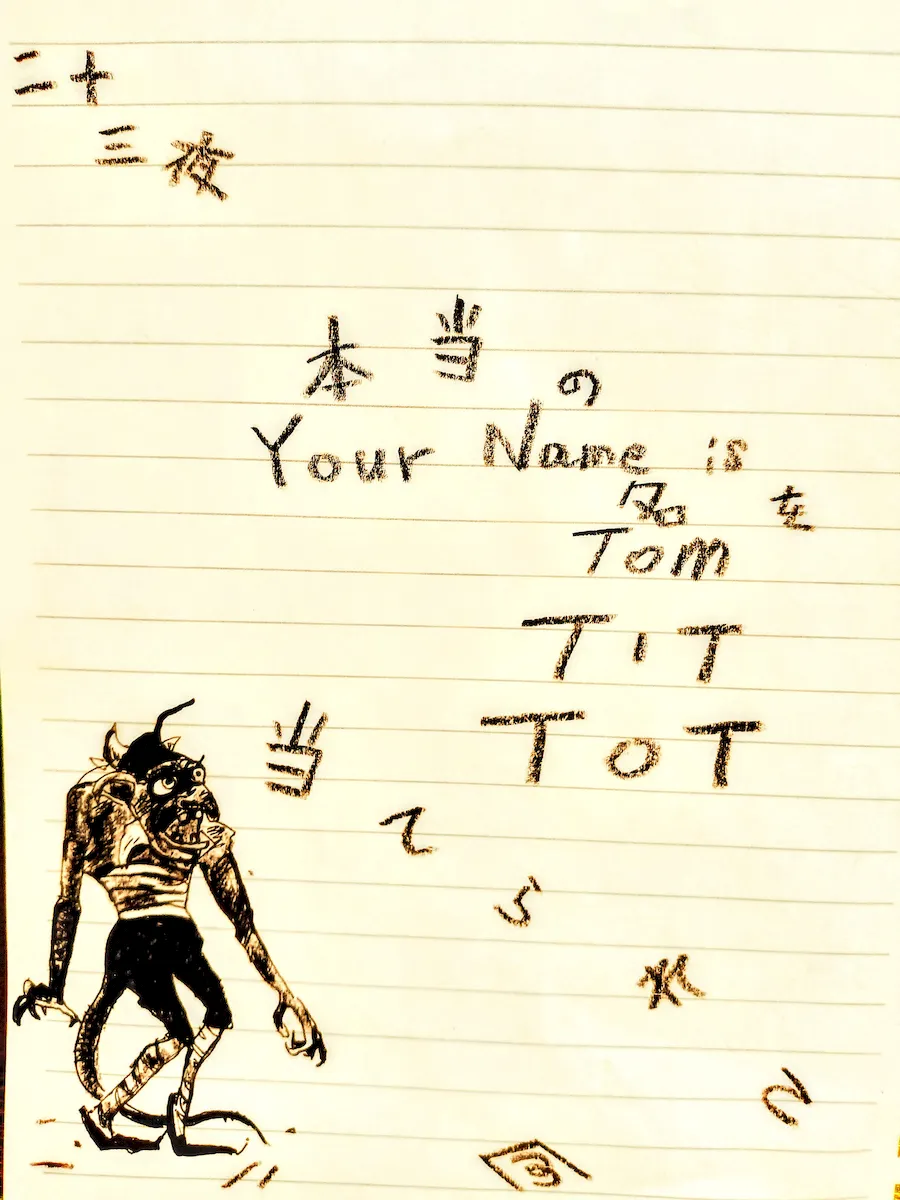 二十
三夜
本当の
Your Name is
名を
Tom
TIT
TOT
当てら